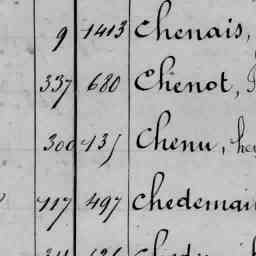 9 1413 Chenais,
337 680 Chenot,
300 135 Chenu,
717 497 Chedemai